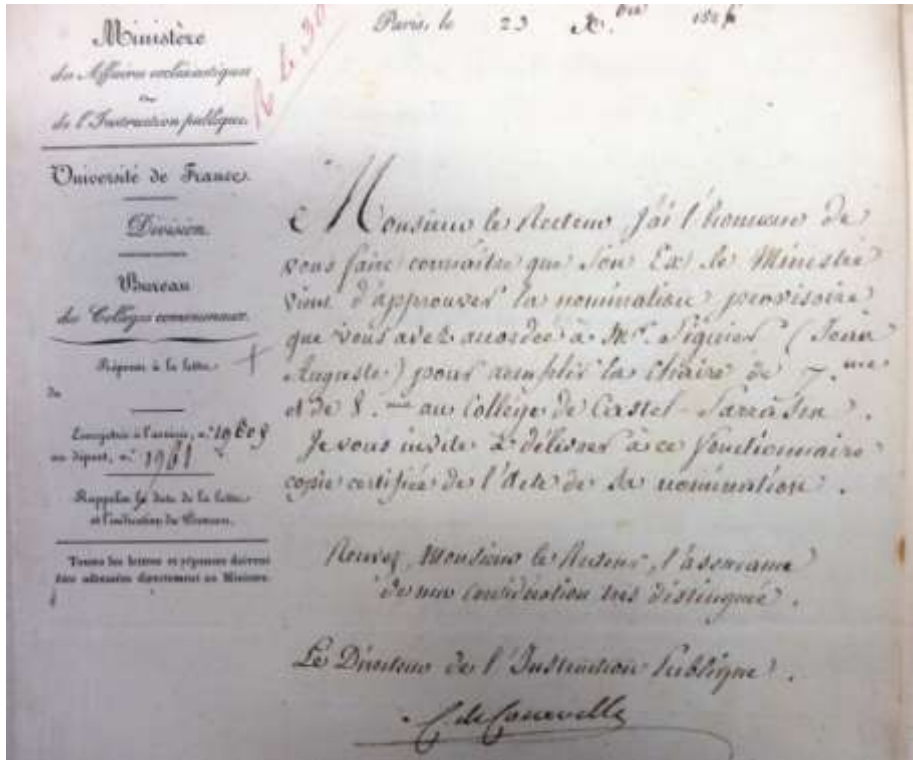 Ministère
des Affaires ecclésiastiques
et
de l'Instruction publique.
Université de France.
Division.
Bureau
des Collèges communaux.
Réponse à la lettre
du
Enregistrée à l'arrivée, n.°
au départ, n.° 1961
Rappeler la date de la lettre
et l'indication du Bureau.
Toutes les lettres et réponses doivent
être adressées directement au Ministre.
Paris, le 23 X.bre
Monsieur le Recteur, j'ai l'honneur de
vous faire connaître que Son Ex. le Ministre
vient d'approuver la nomination provisoire
que vous avez accordée à Mr. Siguier (Jean
Auguste) pour remplir la Chaire de 7.me
et de 8.me au Collège de Castel-Sarrasin.
Je vous invite à délivrer à ce fonctionnaire
copie certifiée de l'acte de sa nomination.
Recevez, Monsieur le Recteur, l'assurance
de ma considération très distinguée.
Le Directeur de l'Instruction Publique.